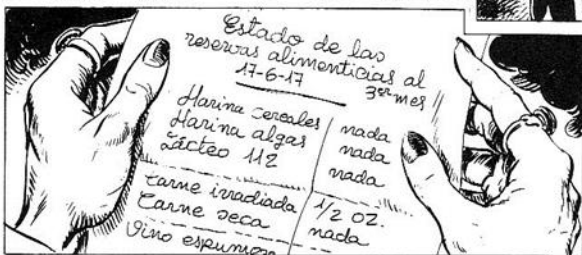 Estado de las
reservas alimenticias al
17-6-17 3er mes
Harina cereales nada
Harina algas nada
Lácteo 112 nada
Carne irradiada 1/2 oz.
Carne seca nada
Vino espumoso